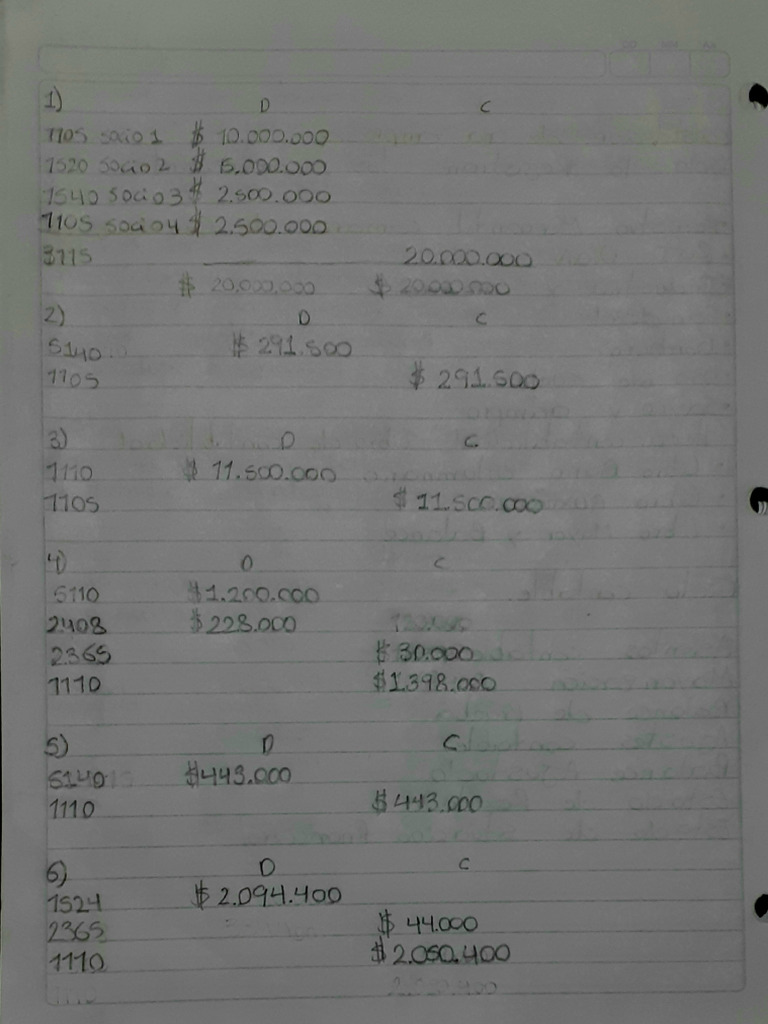 1) D C
1105 socio 1 $ 10.000.000
1520 Socio 2 $ 5.000.000
1540 Socio 3 $ 2.500.000
1105 socio 4 $ 2.500.000
3115 20.000.000
$ 20.000.000 $ 20.000.000
2) D C
5140 $ 291.500
1105 $ 291.500
3) D C
1110 $ 11.500.000
1105 $ 11.500.000
4) D C
5110 $1.200.000
2408 $228.000
2365 $ 30.000
1110 $1.398.000
5) D C
5140 $443.000
1110 $ 443.000
6) D C
1524 $ 2.094.400
2365 $ 44.000
1110 $ 2.050.400